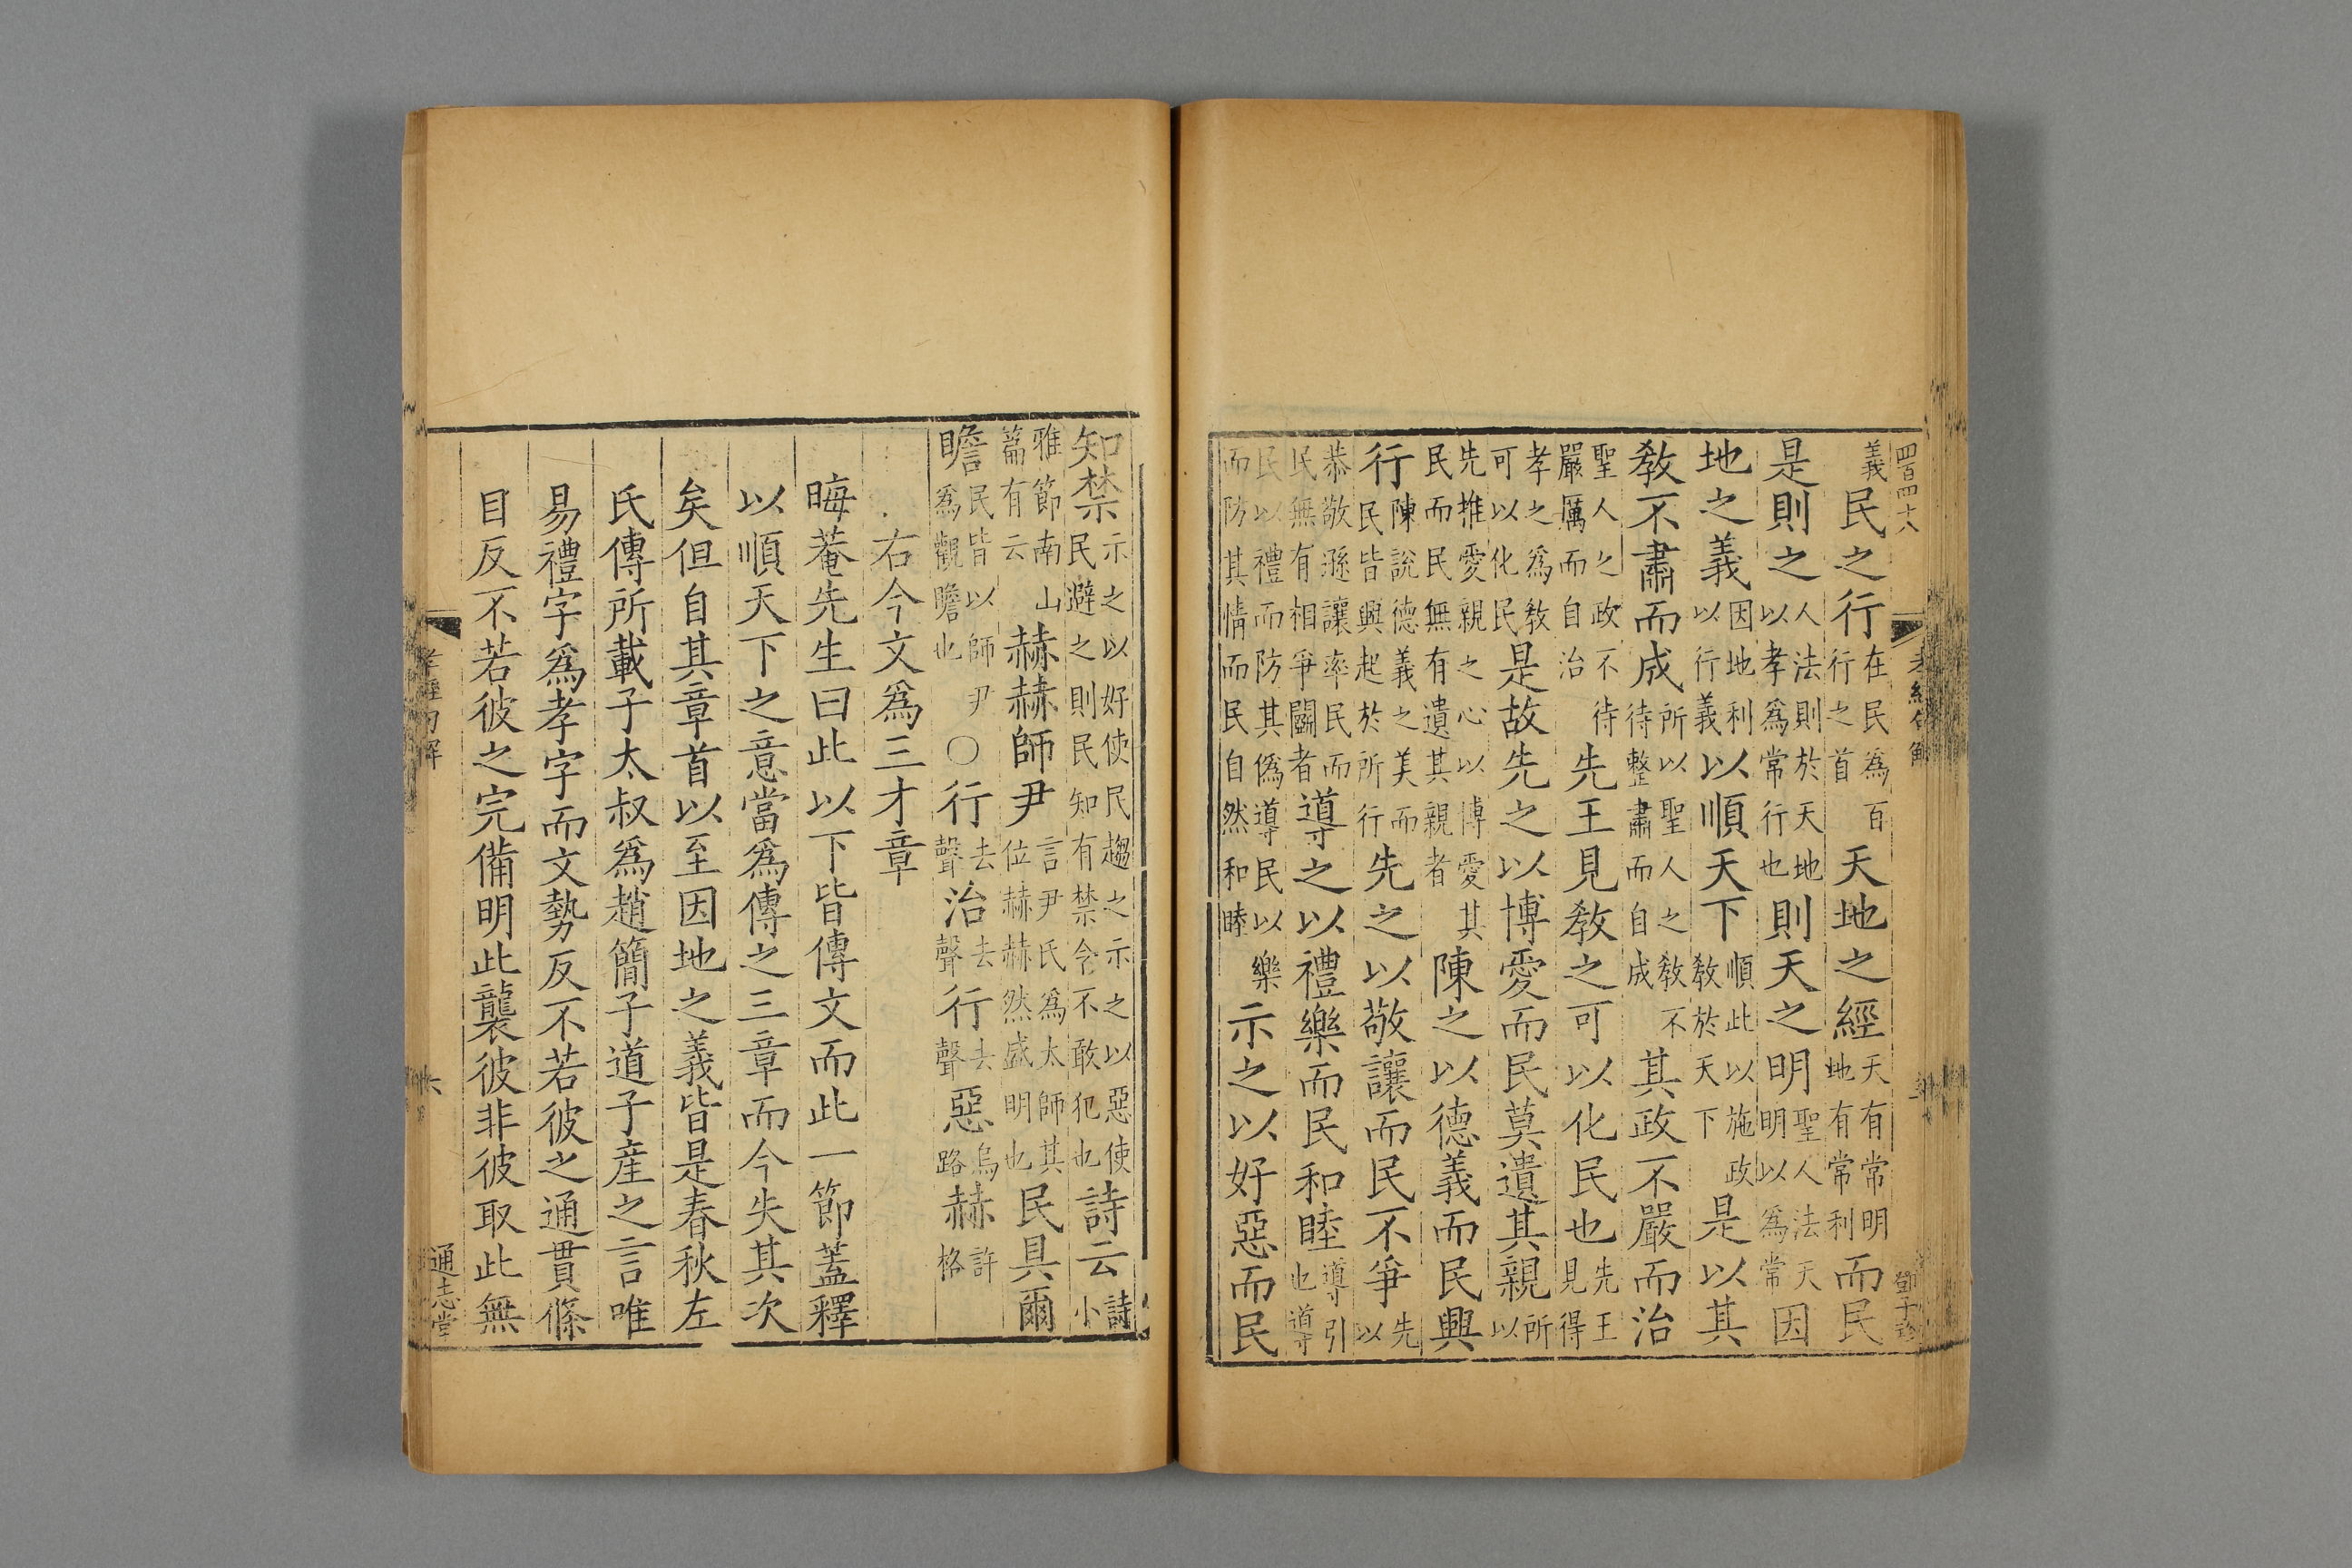 四百四十八
義民之行在民為百行之首天地之經天有常明地有常利而民
是則之人法則於天地以孝為常行也則天之明聖人法天明以為常因
地之義因地利以行義以順天下順此以施政教於天下是以其
教不肅而成所以聖人之教不待整肅而自成其政不嚴而治
聖人之政不待嚴厲而自治先王見教之可以化民也先王見得
孝之為教可以化民是故先之以博愛而民莫遺其親所以
先推愛親之心以博愛其民而民無有遺其親者陳之以德義而民興
行陳說德義之美而民皆興起於所行先之以敬讓而民不爭先以
恭敬遜讓率民而民無有相爭鬭者導之以禮樂而民和睦導引也導
民以禮而防其偽導民以樂而防其情而民自然和睦示之以好惡而民
知禁示之以好使民趨之示之以惡使民避之則民知有禁令不敢犯也詩云詩小
雅節南山篇有云赫赫師尹言尹氏為太師其位赫赫然盛明也民具爾
瞻民皆以師尹為觀瞻也〇行去聲治去聲行去聲惡烏路赫許格
右今文為三才章
晦菴先生曰此以下皆傳文而此一節蓋釋
以順天下之意當為傳之三章而今失其次
矣但自其章首以至因地之義皆是春秋左
氏傳所載子太叔為趙簡子道子產之言唯
易禮字為孝字而文勢反不若彼之通貫條
目反不若彼之完備明此襲彼非彼取此無
孝經句解
六
通志堂